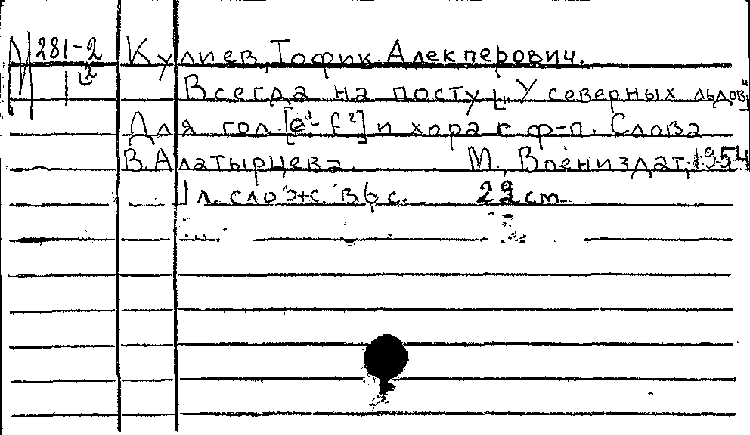 М 281-2 Кулиев, Тофик Алекперович.
Всегда на посту ["У северных льдов"]
Для гол. [e¹-f²] и хора с ф-п. Слова
В. Алатырцева. М., Воениздат, 1954
1 л. слож. в 6 с. 22 cm